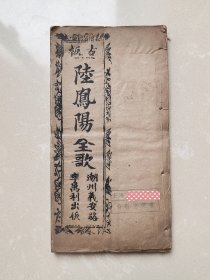 古板
陸鳳陽全歌
潮州義安路
李萬利出版